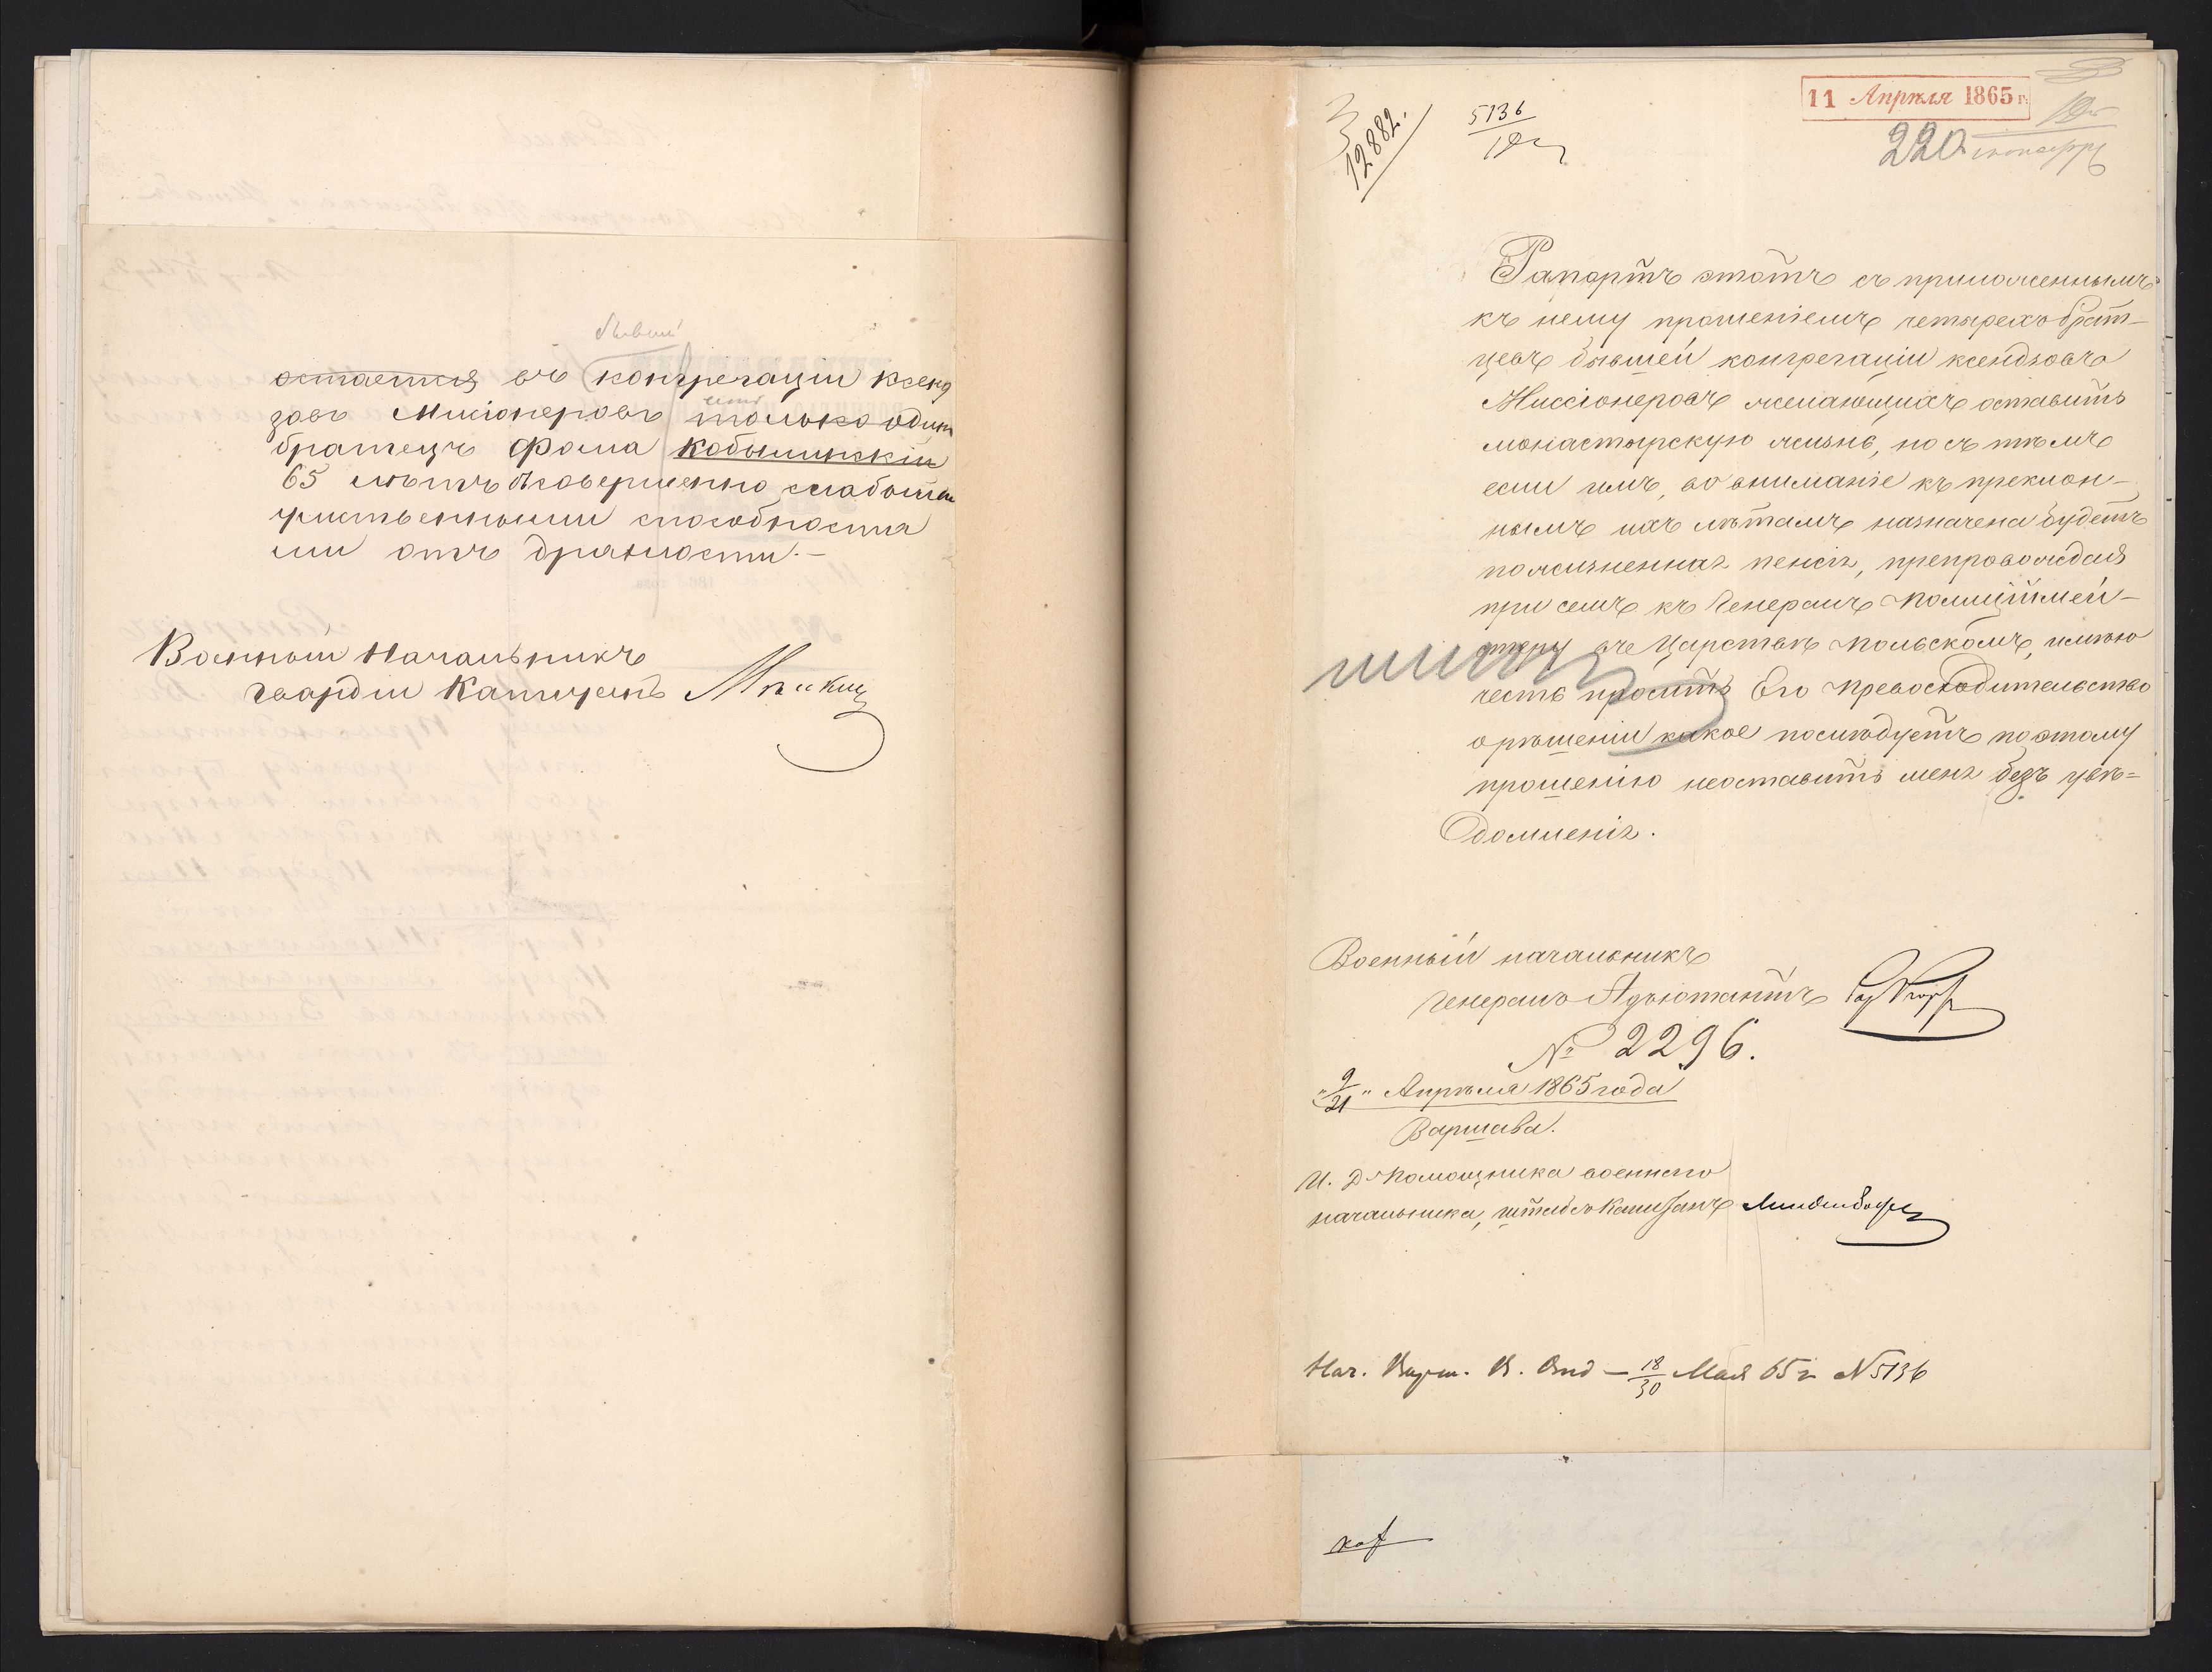 остается въ конгрегаціи ксенд
зовъ Миссіонеровъ только одинъ
братецъ Фома Кобылинскій
65 лѣтъ съ совершенно слабыми
умственными способностя
ми отъ дряхлости.—
Военный Начальникъ
гвардіи Капитанъ
12882.
5136
11 Апрѣля 1865 г.
220
Рапортъ этотъ съ приложеннымъ
къ нему прошеніемъ четырехъ брат-
цевъ бывшей конгрегаціи ксендзовъ
Миссіонеровъ желающихъ оставить
монастырскую жизнь, но съ тѣмъ
если имъ, во вниманіе къ преклон-
нымъ ихъ лѣтамъ назначена будетъ
пожизненная пенсія, препровождая
при семъ къ Генералъ Полиційме-
стеру въ Царствѣ Польскомъ, имѣю
честь просить Его Превосходительство
о рѣшеніи какое послѣдуетъ по этому
прошенію неоставить меня безъ увѣ=
домленія.
Военный начальникъ
Генералъ-Адъютантъ
№ 2296.
"9/21" Апрѣля 1865 года
Варшава.
И. Д. Помощника военнаго
начальника, штабсъ-Капитанъ
Нач. Варш. В. Отд — 18/30 Мая 65 г № 5136